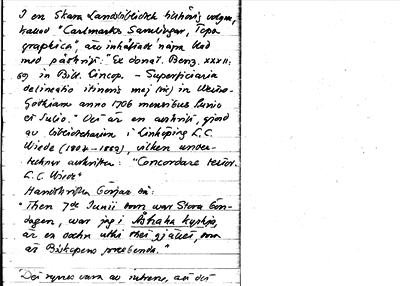 I en Skara Landsbibliotek tillhörig volym,
kallad "Carlmarks Samlingar, Topo-
graphica", är inhäftade några blad
med påskrift: "Ex donat. Benz. XXXII:
69 in Bibl. Lincop. - Superficiaria
delineatio itineris mei (sic) in Westro-
Gothiam anno 1706 mensibus Junio
et Julio." Det är en avskrift, gjord
av bibliotekarien i Linköping L.C.
Wiede (1804-1882), vilken under-
tecknar avskriften: "Concordare testor
L.C. Wiede"
Handskriften börjar så:
"Then 7de Junii som war Stora Bön-
dagen, war jag i Åstraka kyrkja,
är en sochn uthi gjället, som
är Biskopens præbende."
Det synes vara av intresse, att det